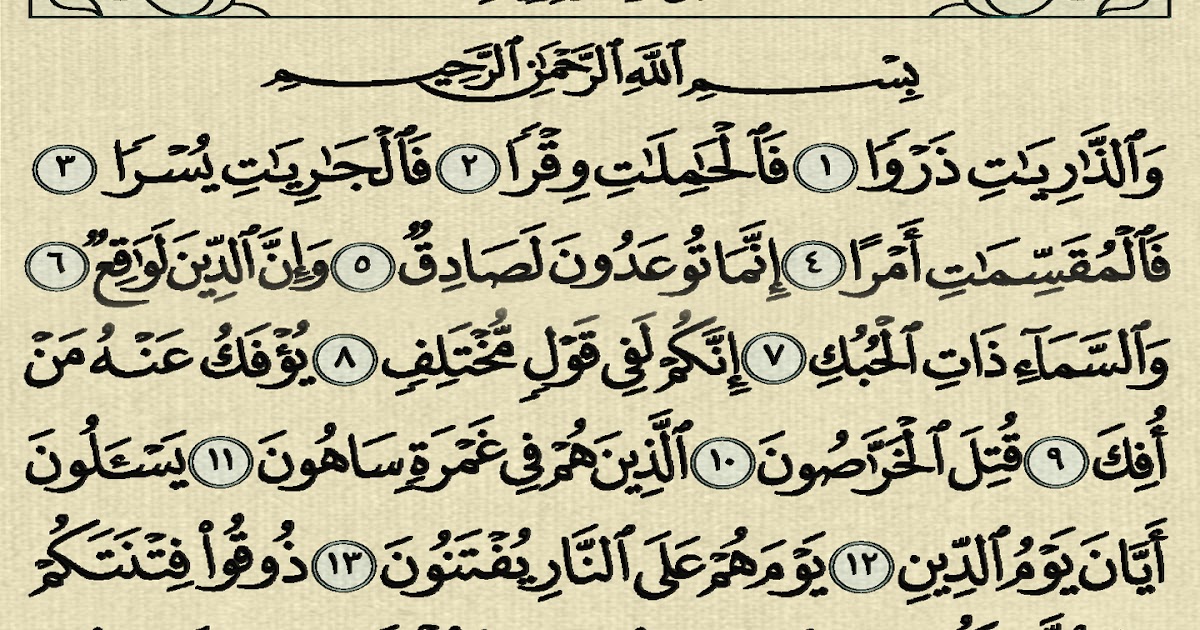 بِسْمِ ٱللَّهِ ٱلرَّحْمَٰنِ ٱلرَّحِيمِ
وَٱلذَّٰرِيَٰتِ ذَرْوًا ١ فَٱلْحَٰمِلَٰتِ وِقْرًا ٢ فَٱلْجَٰرِيَٰتِ يُسْرًا ٣
فَٱلْمُقَسِّمَٰتِ أَمْرًا ٤ إِنَّمَا تُوعَدُونَ لَصَادِقٌ ٥ وَإِنَّ ٱلدِّينَ لَوَٰقِعٌ ٦
وَٱلسَّمَآءِ ذَاتِ ٱلْحُبُكِ ٧ إِنَّكُمْ لَفِى قَوْلٍ مُّخْتَلِفٍ ٨ يُؤْفَكُ عَنْهُ مَنْ
أُفِكَ ٩ قُتِلَ ٱلْخَرَّٰصُونَ ١٠ ٱلَّذِينَ هُمْ فِى غَمْرَةٍ سَاهُونَ ١١ يَسْـَٔلُونَ
أَيَّانَ يَوْمُ ٱلدِّينِ ١٢ يَوْمَ هُمْ عَلَى ٱلنَّارِ يُفْتَنُونَ ١٣ ذُوقُوا۟ فِتْنَتَكُمْ